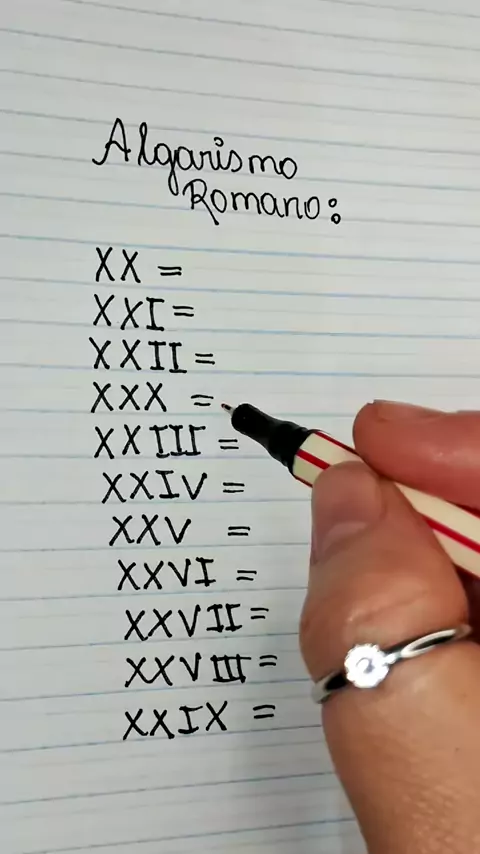 Algarismo
Romano:
XX =
XXI =
XXII =
XXX =
XXIII =
XXIV =
XXV =
XXVI =
XXVII =
XXVIII =
XXIX =